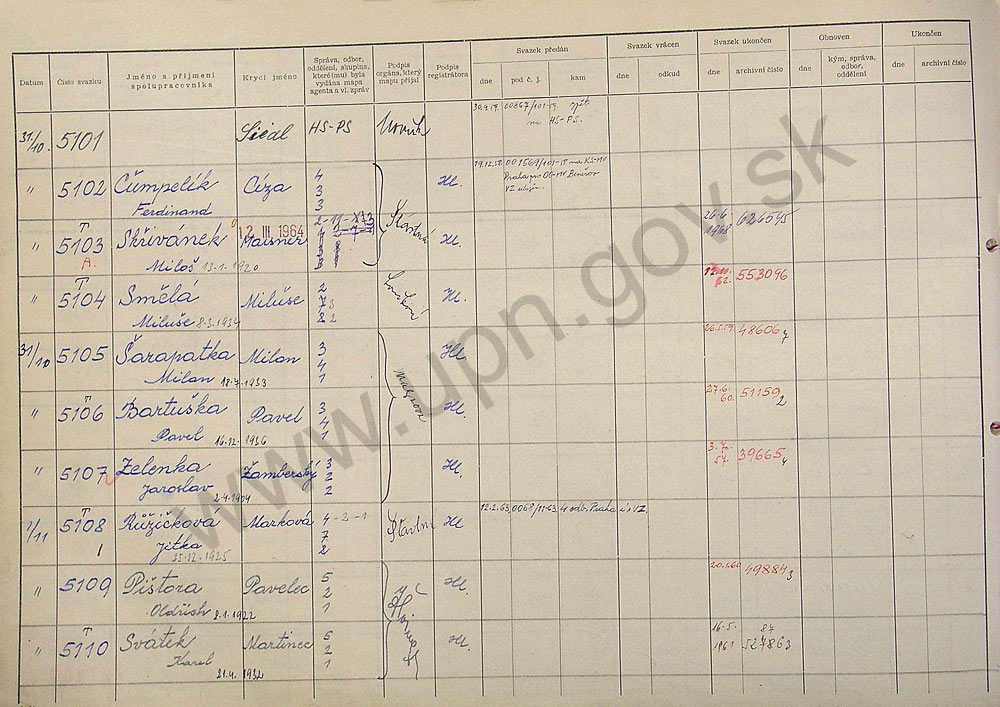 Datum
Číslo svazku
Jméno a příjmení spolupracovníka
Krycí jméno
Správa, odbor, oddělení, skupina, které(mu) byla vydána mapa agenta a vl. zpráv
Podpis orgána, který mapu přijal
Podpis registrátora
Svazek předán
dne
pod č. j.
kam
Svazek vrácen
dne
odkud
Svazek ukončen
dne
archivní číslo
Obnoven
dne
kým, správa, odbor, oddělení
Ukončen
dne
archivní číslo
31/10. 5101 Siedl HS-PS Novák 30.9.59. 00867/101-59. zpět
na HS-PS.
" 5102 Čumpelík Cíza 4 Hl. 19.12.
Ferdinand 3
3
" T 5103 Skřivánek Maisner 12 III. 1964 Hl. 26.6. 626545
A. Miloš 13.1.1920 1968
" T 5104 Smělá Miluše 2 Hl. 553096
Miluše 8.3.1934 7 3 62.
2 2
31/10 5105 Šarapatka Milan 3 Hl. 26.5.59 48606
Milan 18.7.1933 4 7
1
" T 5106 Bartuška Pavel 3 Hl. 27.6. 51159
Pavel 16.12.1936 4 60. 2
1
" 5107 Zelenka Žamberský 3 Hl. 3.7. 39665
Jaroslav 2.4.1904 2 57. 4
2
1/11 T 5108 Růžičková Marková 4-2-1 Šťastný Hl. 12.2.63 0069/11-63 4 odb. Praha VZ.
1 Jitka 7
25.12.1925 2
" 5109 Pištora Pavelec 5 Hl. 20.1.60 49884
Oldřich 8.1.1922 2 3
1
" T 5110 Svátek Martinec 5 Hl. 16.5. 87
Karel 2 1961 527863
21.4.1932 1
www.upn.gov.sk